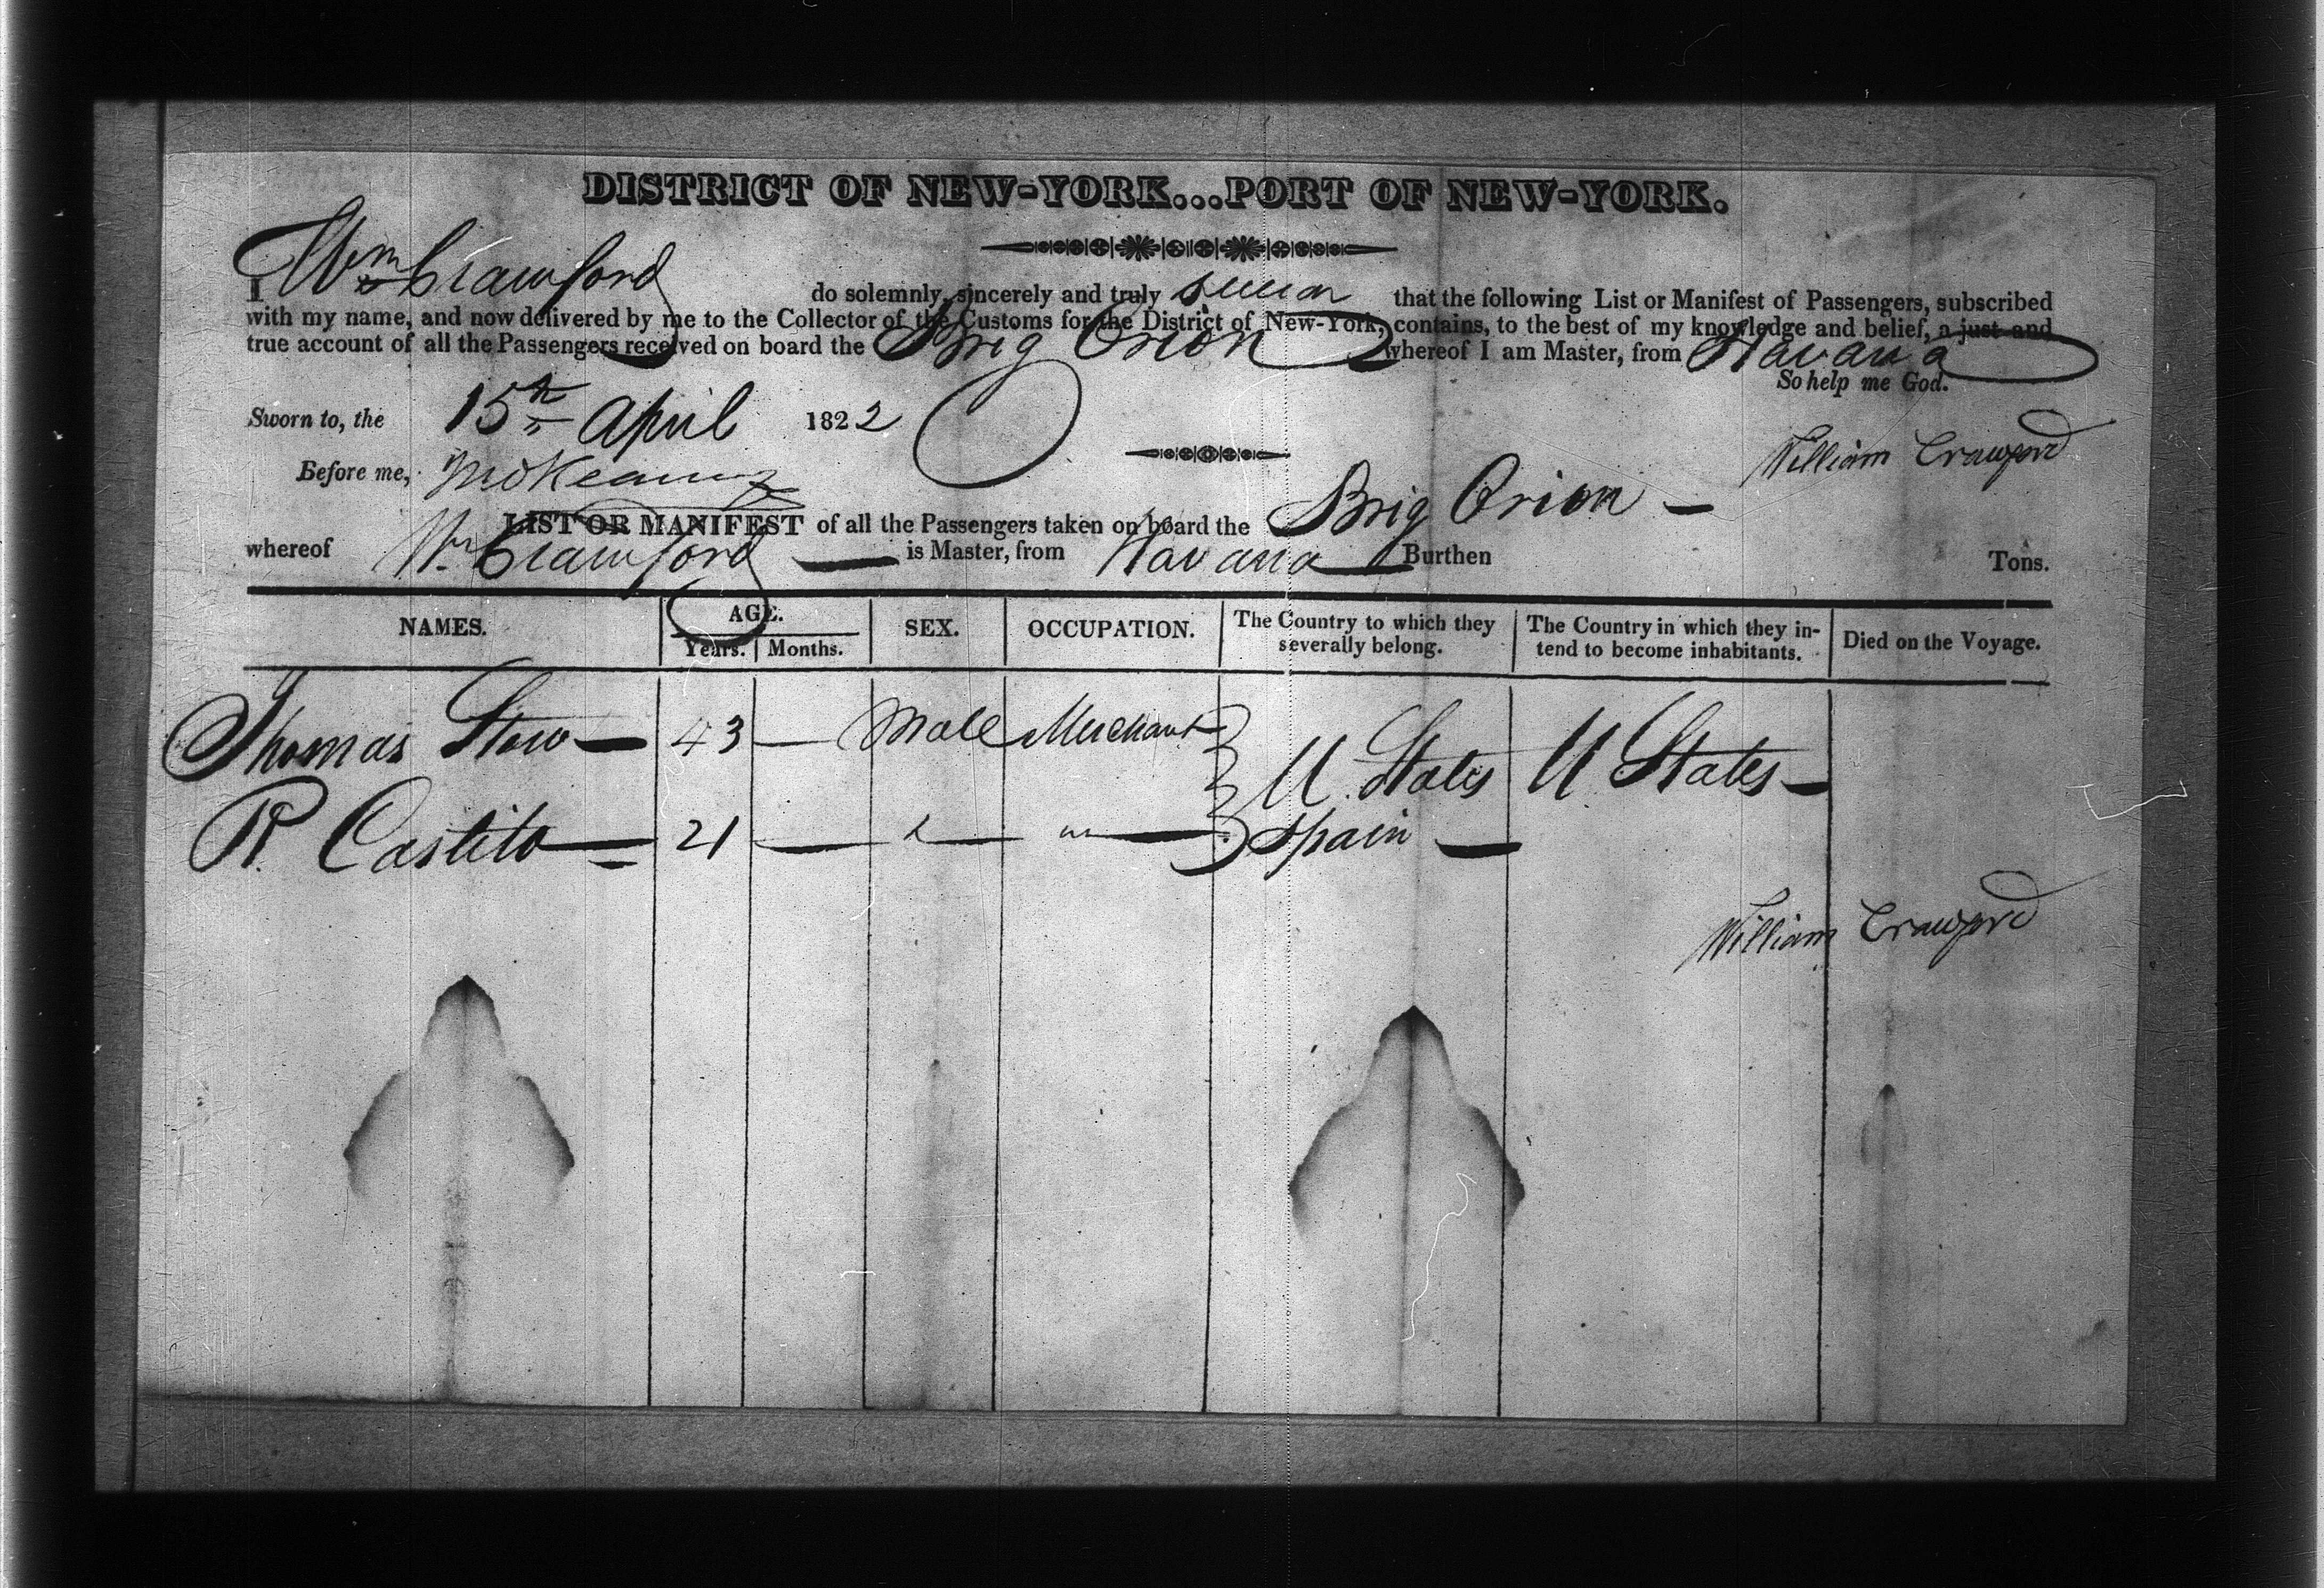 DISTRICT OF NEW-YORK...PORT OF NEW-YORK.
I Wm Crawford do solemnly, sincerely and truly swear that the following List or Manifest of Passengers, subscribed
with my name, and now delivered by me to the Collector of the Customs for the District of New-York, contains, to the best of my knowledge and belief, a just and
true account of all the Passengers received on board the Brig Orion whereof I am Master, from Havana
So help me God.
Sworn to, the 15th April 1822
William Crawford
Before me,
LIST OR MANIFEST of all the Passengers taken on board the Brig Orion
whereof Wm Crawford is Master, from Havana Burthen Tons.
NAMES. AGE. SEX. OCCUPATION. The Country to which they severally belong. The Country in which they in-
Years. Months. tend to become inhabitants. Died on the Voyage.
Thomas Stow 43 Male Merchant U. States U States
R. Castito 21 Spain
William Crawford